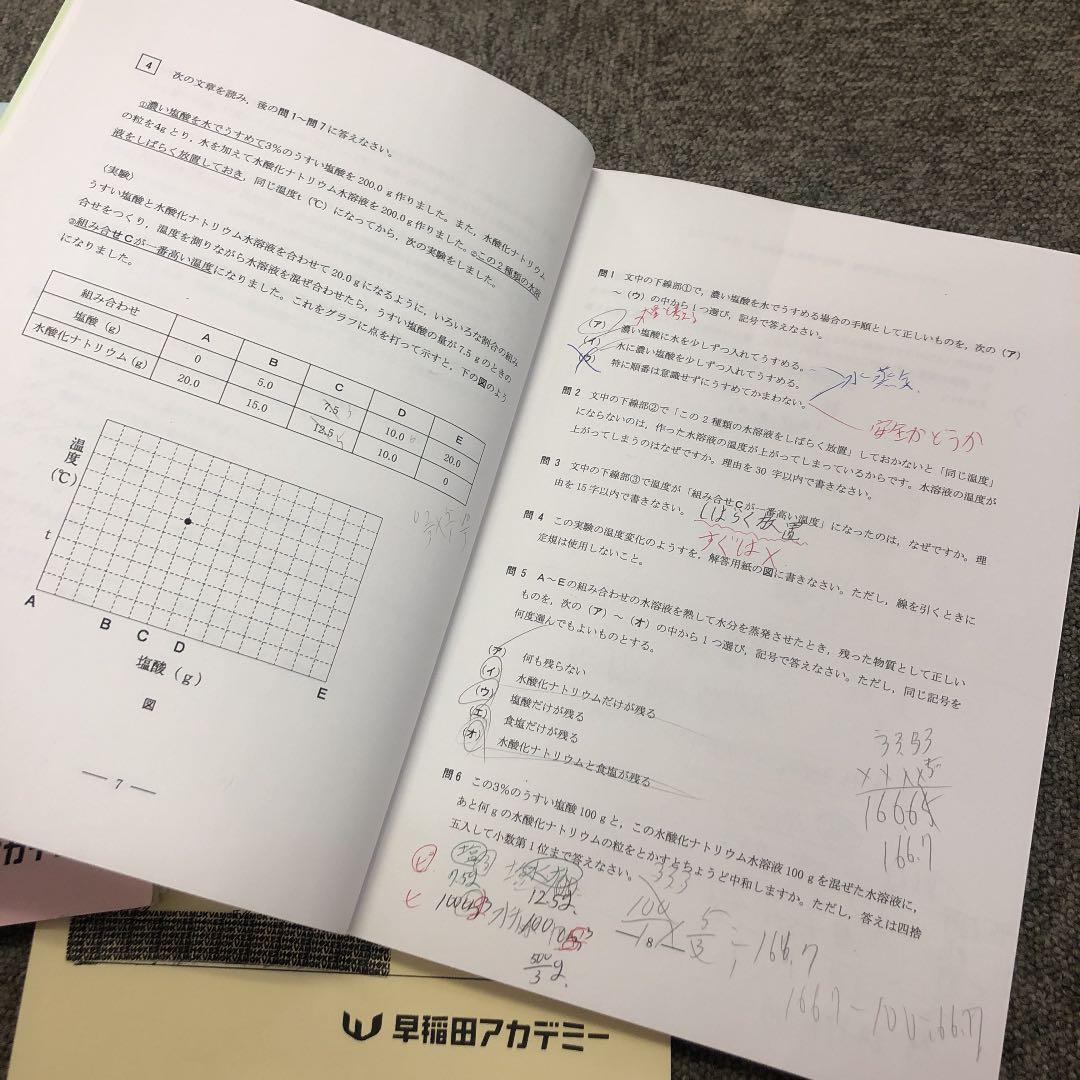 4 次の文章を読み，後の問1～問7に答えなさい。
①濃い塩酸を水でうすめて3%のうすい塩酸を200.0g作りました。また，水酸化ナトリウム
の粒を4gとり，水を加えて水酸化ナトリウム水溶液を200.0g作りました。②この2種類の水溶
液をしばらく放置しておき，同じ温度t（℃）になってから，次の実験をしました。
（実験）
うすい塩酸と水酸化ナトリウム水溶液を合わせて20.0gになるように，いろいろな割合の組み
合せをつくり，温度を測りながら水溶液を混ぜ合わせたら，うすい塩酸の量が7.5gのときの
③組み合せCが一番高い温度になりました。これをグラフに点を打って示すと，下の図のよう
になりました。
組み合わせ A B C D E
塩酸（g） 0 5.0 7.5 10.0 20.0
水酸化ナトリウム（g） 20.0 15.0 12.5 10.0 0
温度（℃）
t
A B C D E
塩酸（g）
図
― 7 ―
問1 文中の下線部①で，濃い塩酸を水でうすめる場合の手順として正しいものを，次の（ア）
～（ウ）の中から1つ選び，記号で答えなさい。
（ア） 濃い塩酸に水を少しずつ入れてうすめる。
（イ） 水に濃い塩酸を少しずつ入れてうすめる。
（ウ） 特に順番は意識せずにうすめてかまわない。
水蒸気
安全かどうか
問2 文中の下線部②で「この2種類の水溶液をしばらく放置」しておかないと「同じ温度」
にならないのは，作った水溶液の温度が上がってしまっているからです。水溶液の温度が
上がってしまうのはなぜですか。理由を30字以内で書きなさい。
問3 文中の下線部③で温度が「組み合せCが一番高い温度」になったのは，なぜですか。理
由を15字以内で書きなさい。
しばらく放置
すぐは×
問4 この実験の温度変化のようすを，解答用紙の図に書きなさい。ただし，線を引くときに
定規は使用しないこと。
問5 A～Eの組み合わせの水溶液を熱して水分を蒸発させたとき，残った物質として正しい
ものを，次の（ア）～（オ）の中から1つ選び，記号で答えなさい。ただし，同じ記号を
何度選んでもよいものとする。
（ア） 何も残らない
（イ） 水酸化ナトリウムだけが残る
（ウ） 塩酸だけが残る
（エ） 食塩だけが残る
（オ） 水酸化ナトリウムと食塩が残る
問6 この3%のうすい塩酸100gと，この水酸化ナトリウム水溶液100gを混ぜた水溶液に，
あと何gの水酸化ナトリウムの粒をとかすとちょうど中和しますか。ただし，答えは四捨
五入して小数第1位まで答えなさい。
166.7
7.5g 12.5g
500/3 g
166.7
166.7-100=66.7
早稲田アカデミー